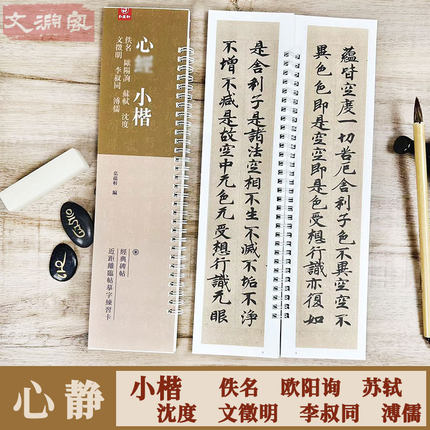 心 小楷
佚名 歐陽詢 蘇軾 沈度
文徵明 李叔同 溥儒
經典碑帖
近距離臨帖摹字練習卡
蘊皆空度一切苦厄舍利子色不異空空不
異色色即是空空即是色受想行識亦復如
是舍利子是諸法空相不生不滅不垢不淨
不增不減是故空中无色无受想行識无眼
心静 小楷 佚名 欧阳询 苏轼
沈度 文徵明 李叔同 溥儒